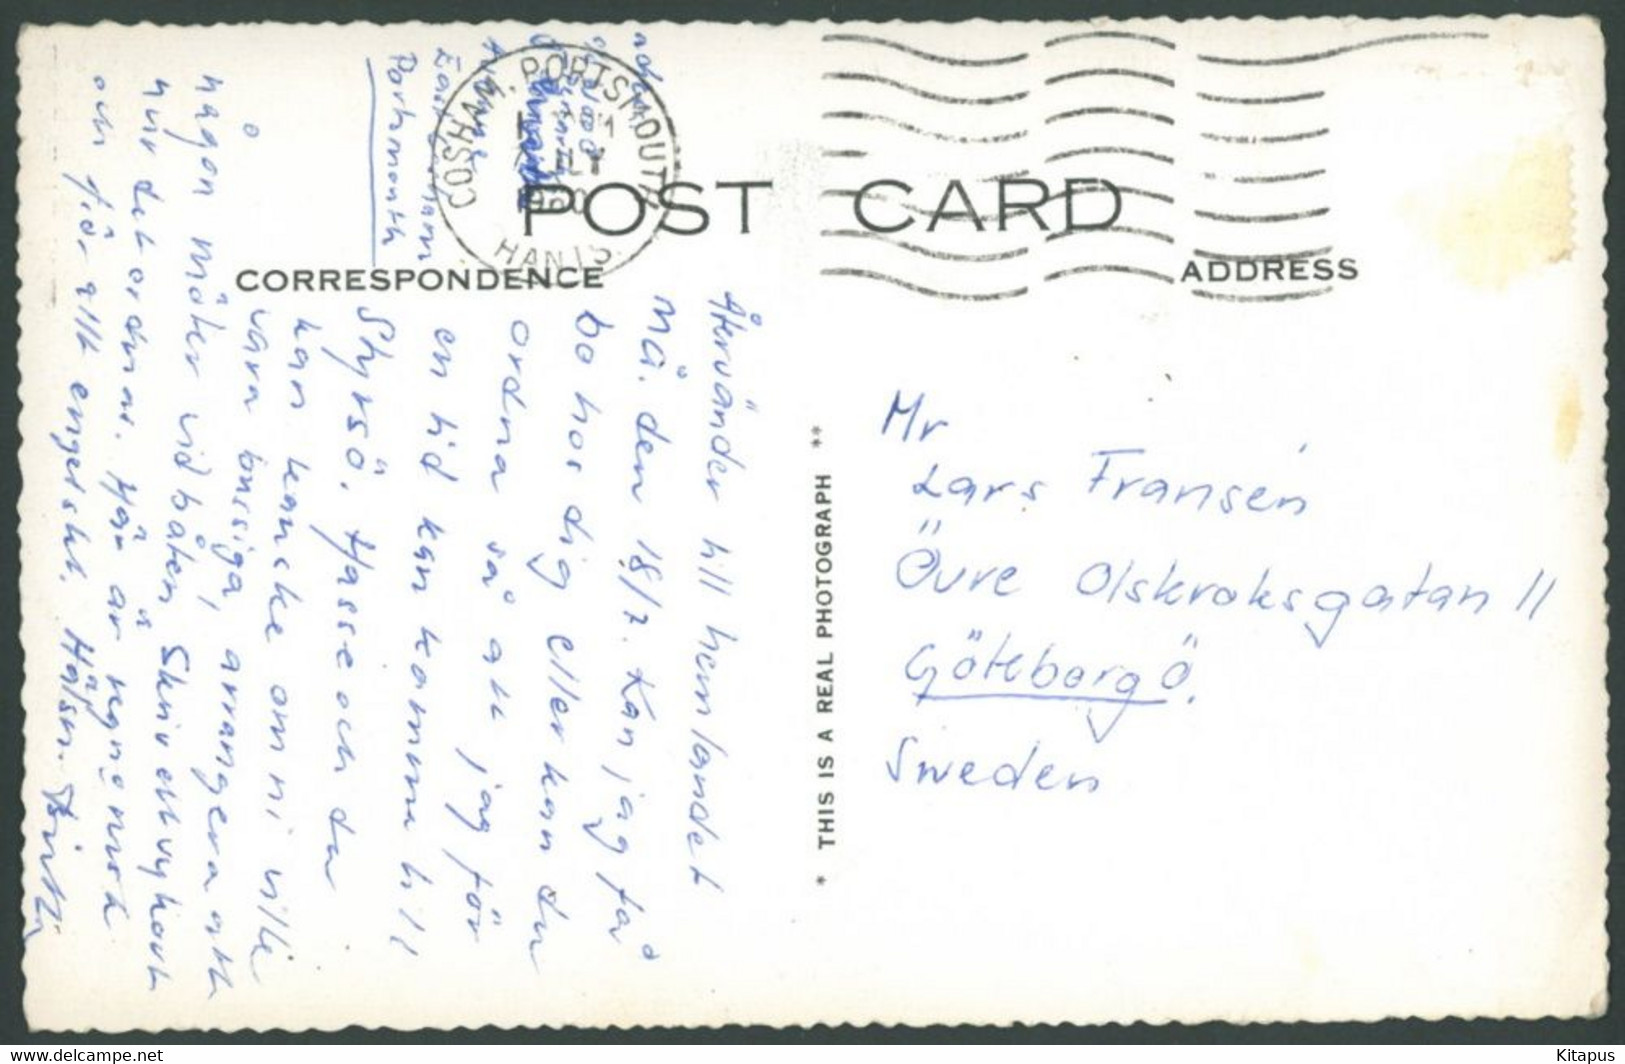 POST CARD
CORRESPONDENCE
ADDRESS
COSHAM, PORTSMOUTH
JLY
1960
HANTS.
adr.
East
Portsmouth
Återvänder till hemlandet
må. den 18/7. Kan jag få
bo hos dig eller kan du
ordna så att jag för
en tid kan komma till
Styrsö. Hasse och du
kan kanske om ni ville
vara bussiga, arrangera att
någon möter vid båten. Skriv ett vykort
hur det ordnas. Här är regn och
och för allt engelskt. Hälsn.
* THIS IS A REAL PHOTOGRAPH **
Mr
Lars Fransén
Övre Olskroksgatan 11
Göteborg Ö.
Sweden
Kitapus